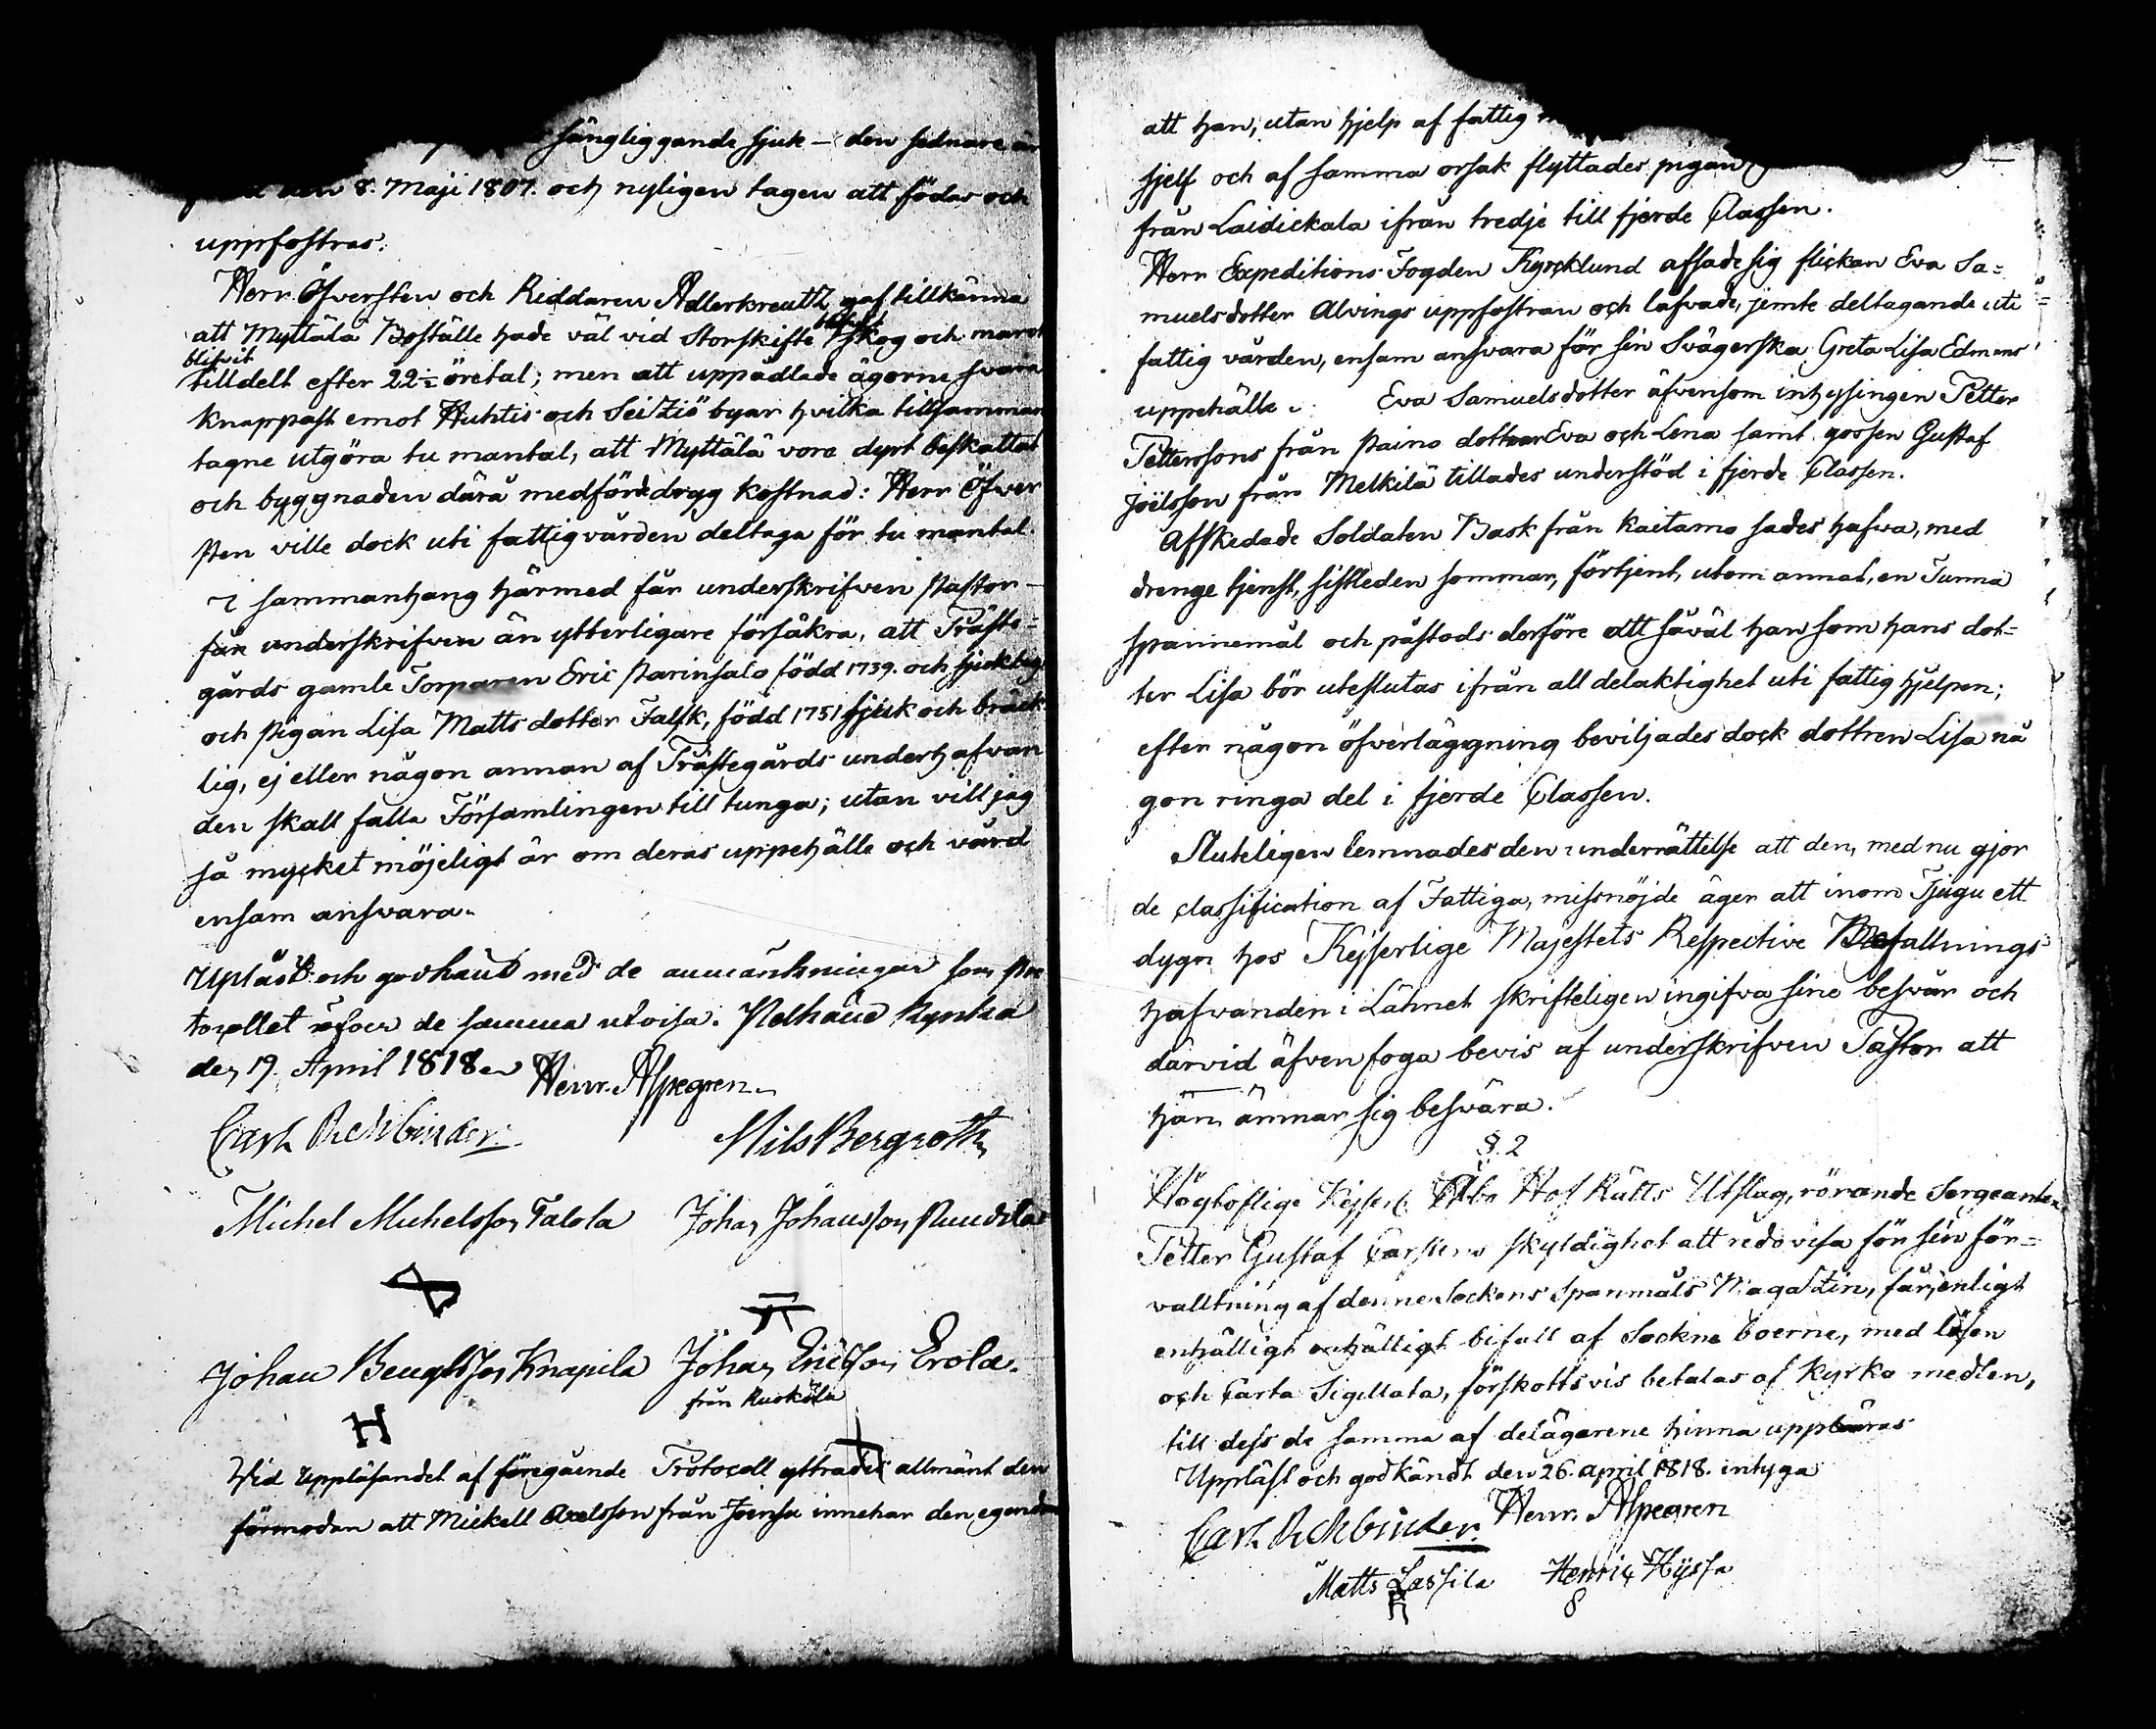 sängliggande sjuk – den sednare är
den 8. Maji 1807. och nyligen tagen att födas och
uppfostras.
Herr Öfversten och Riddaren Adlerkreutz gaf tillkänna
att Myttälä Boställe hade väl vid Storskifte skog och mark
blifvit
tilldelt efter 22½ öretal; men att uppådlade ägorne svara
knappast emot Huhtis och Seitziö byar hvilka tillsamman
tagne utgöra tu mantal, att Myttälä vore dyrt beskattat
och byggnaden därå medförde dryg kostnad: Herr Öfver
sten ville dock uti fattigvården deltaga för tu mantal.
I sammanhang härmed får underskrifven Pastor –
får underskrifven än ytterligare försäkra, att Präste=
gårds gamle Torparen Eric Parinsalo född 1739. och
och pigan Lisa Mattsdotter Falsk, född 1751 sjuk och bräck
lig, ej eller någon annan af Prästegårds underhafvan
den skall falla Församlingen till tunga; utan vill jag
så mycket möjeligt är om deras uppehälle och vård
ensam ansvara.
Upläst och godkänd med de anmärkningar som Pro
tocollet öfver de samma utvisa. Kyrka
den 19 April 1818
Henr. Alpegren
Carl Rehbinder
Nils Bergroth
Michel Michelsson Talola Johan Johansson
Johan Bengtsson Knapila Johan Ericsson Erola.
från Ruokola
Wid uppläsandet af föregående Protocoll yttrades allmänt den
förmodan att Mickell Axelsson från Joensu innehar den egendom
att han, utan hjelp af fattig
sjelf och af samma orsak flyttades pigan
från Laidickala ifrån tredje till fjerde Classen.
Herr Expeditions Fogden Kyrcklund afsade sig flickan Eva Sa=
muelsdotter Alvings uppfostran och lofvade, jemte deltagande uti
fattig vården, ensam ansvara för sin Svägerska Greta Lisa Edmans
uppehälle. Eva Samuelsdotter äfvensom inhysingen Petter
Petterssons från Paino dottrar Eva och Lena samt gossen Gustaf
Joëlsson från Melkilä tillades understöd i fjerde Classen.
Afskedade Soldaten Bask från Kaitamo sades hafva, med
drenge tjenst, sistleden sommar, förtjent, utom annat, en Tunna
spannemål och påstods derföre att såväl han som hans dot=
ter Lisa bör uteslutas ifrån all delaktighet uti fattig hjelpen;
efter någon öfverläggning beviljades dock dottren Lisa nå
gon ringa del i fjerde Classen.
Sluteligen lemnades den underrättelse att den, med nu gjor
de classification af Fattiga, missnöjde äger att inom Tjugu ett
dygn hos Kejserlige Majestets Respective Befallnings
hafvanden i Lähnet skrifteligen ingifva sine besvär och
därvid äfven foga bevis af underskrifven Pastor att
han ämnar sig besvära.
§. 2
Högloflige Kejserl. Åbo Hof Rätts Utslag, rörande Sergeanten
Petter Gustaf Carstens skyldighet att redovisa för sin för=
valltning af denne Sockens Spanmåls Magazin, får, enligt
enhälligt enhälligt bifall af Sockne boerne, med lösen
och Carta Sigillata, förskottsvis betalas af Kyrko medlen,
till dess de samma af delägarene hinna uppbäras
Uppläst och godkändt den 26. april 1818. intyga
Carl Rehbinder. Henr. Alpegren
Matts Lassila Henric Hyssa